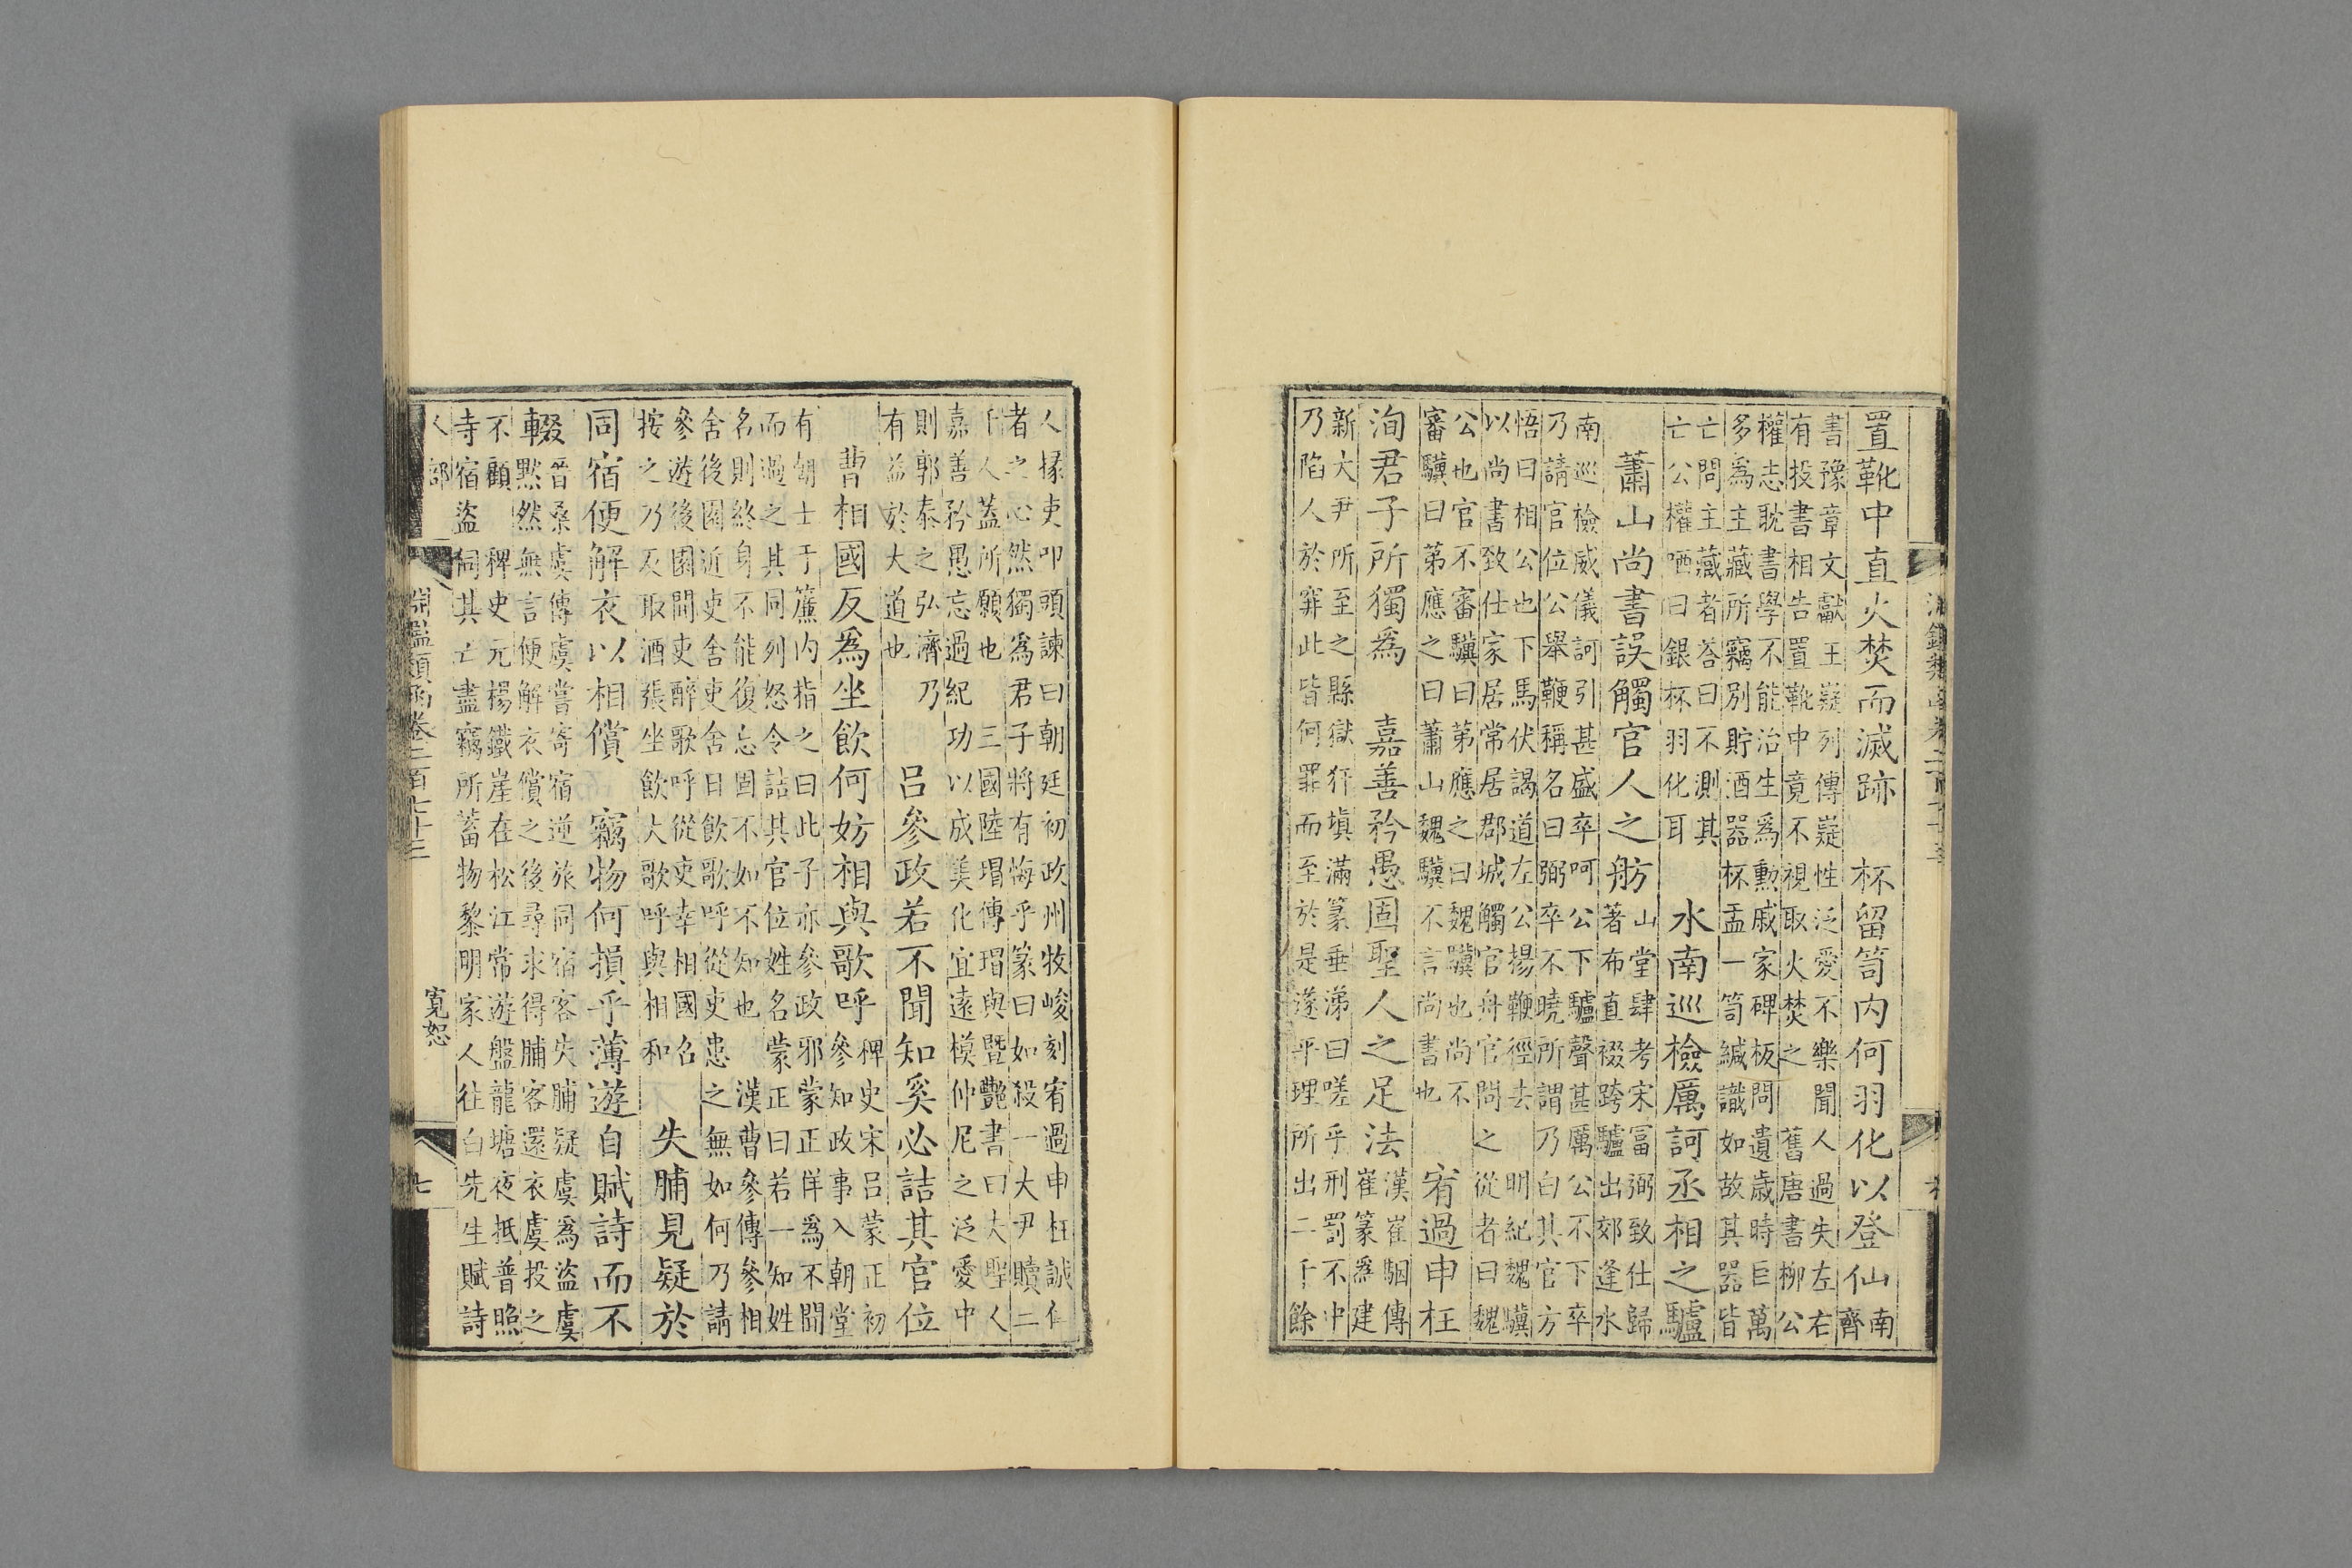 置靴中直火焚而滅跡　杯留笥内何羽化以登仙南
齊
書豫章文獻王嶷列傳嶷性泛愛不樂聞人過失左右
有投書相告置靴中竟不視取火焚之　舊唐書柳公
權志耽書學不能治生爲勲戚家碑板問遺歲時巨萬
多爲主藏所竊別貯酒器杯盂一笥緘識如故其器皆
亡問主藏者荅曰不測其
亡公權哂曰銀杯羽化耳
水南巡檢厲訶丞相之驢
蕭山尚書誤觸官人之舫
山堂肆考宋富弼致仕歸
著布直裰跨驢出郊逢水
南巡檢威儀訶引甚盛卒呵公下驢聲甚厲公不下卒
乃請官位公舉鞭稱名曰弼卒不曉所謂乃白其官方
悟曰相公也下馬伏謁道左公揚鞭徑去　明紀魏驥
以尚書致仕家居常居郡城觸官舟官問之從者曰魏
公也官不審驥曰第應之曰魏驥也尚不
審驥曰第應之曰蕭山魏驥不言尚書也
宥過申枉
洵君子所獨爲　嘉善矜愚固聖人之足法
漢崔駰傳
崔篆爲建
新大尹所至之縣獄犴填滿篆垂涕曰嗟乎刑罰不中
乃陷人於穽此皆何罪而至於是遂平理所出二千餘
人掾吏叩頭諫曰朝廷初政州牧峻刻宥過申枉誠仁
者之心然獨爲君子將有悔乎篆曰如殺一大尹贖二
千人蓋所願也　三國陸瑁傳瑁與暨艷書曰夫聖人
嘉善矜愚忘過紀功以成美化宜遠模仲尼之泛愛中
則郭泰之弘濟乃
有益於大道也
吕參政若不聞知奚必詰其官位
曹相國反爲坐飲何妨相與歌呼
稗史宋吕蒙正初
參知政事入朝堂
有朝士于簾内指之曰此子亦參政邪蒙正佯爲不聞
而過之其同列怒令詰其官位姓名蒙正曰若一知姓
名則終身不能復忘固不如不知也　漢曹參傳參相
舍後園近吏舍吏舍日飲歌呼從吏患之無如何乃請
參遊後園聞吏醉歌呼從吏幸相國名
按之乃反取酒張坐飲大歌呼與相和
失脯見疑於
同宿便解衣以相償　竊物何損乎薄遊自賦詩而不
輟
晉桑虞傳虞嘗寄宿逆旅同宿客失脯疑虞爲盜虞
默然無言便解衣償之後尋求得脯客還衣虞投之
不顧　稗史元楊鐵崖在松江常遊盤龍塘夜抵普照
寺宿盜伺其亡盡竊所蓄物黎明家人往白先生賦詩
人部
淵鑑類函卷二百七十三
寬恕
七